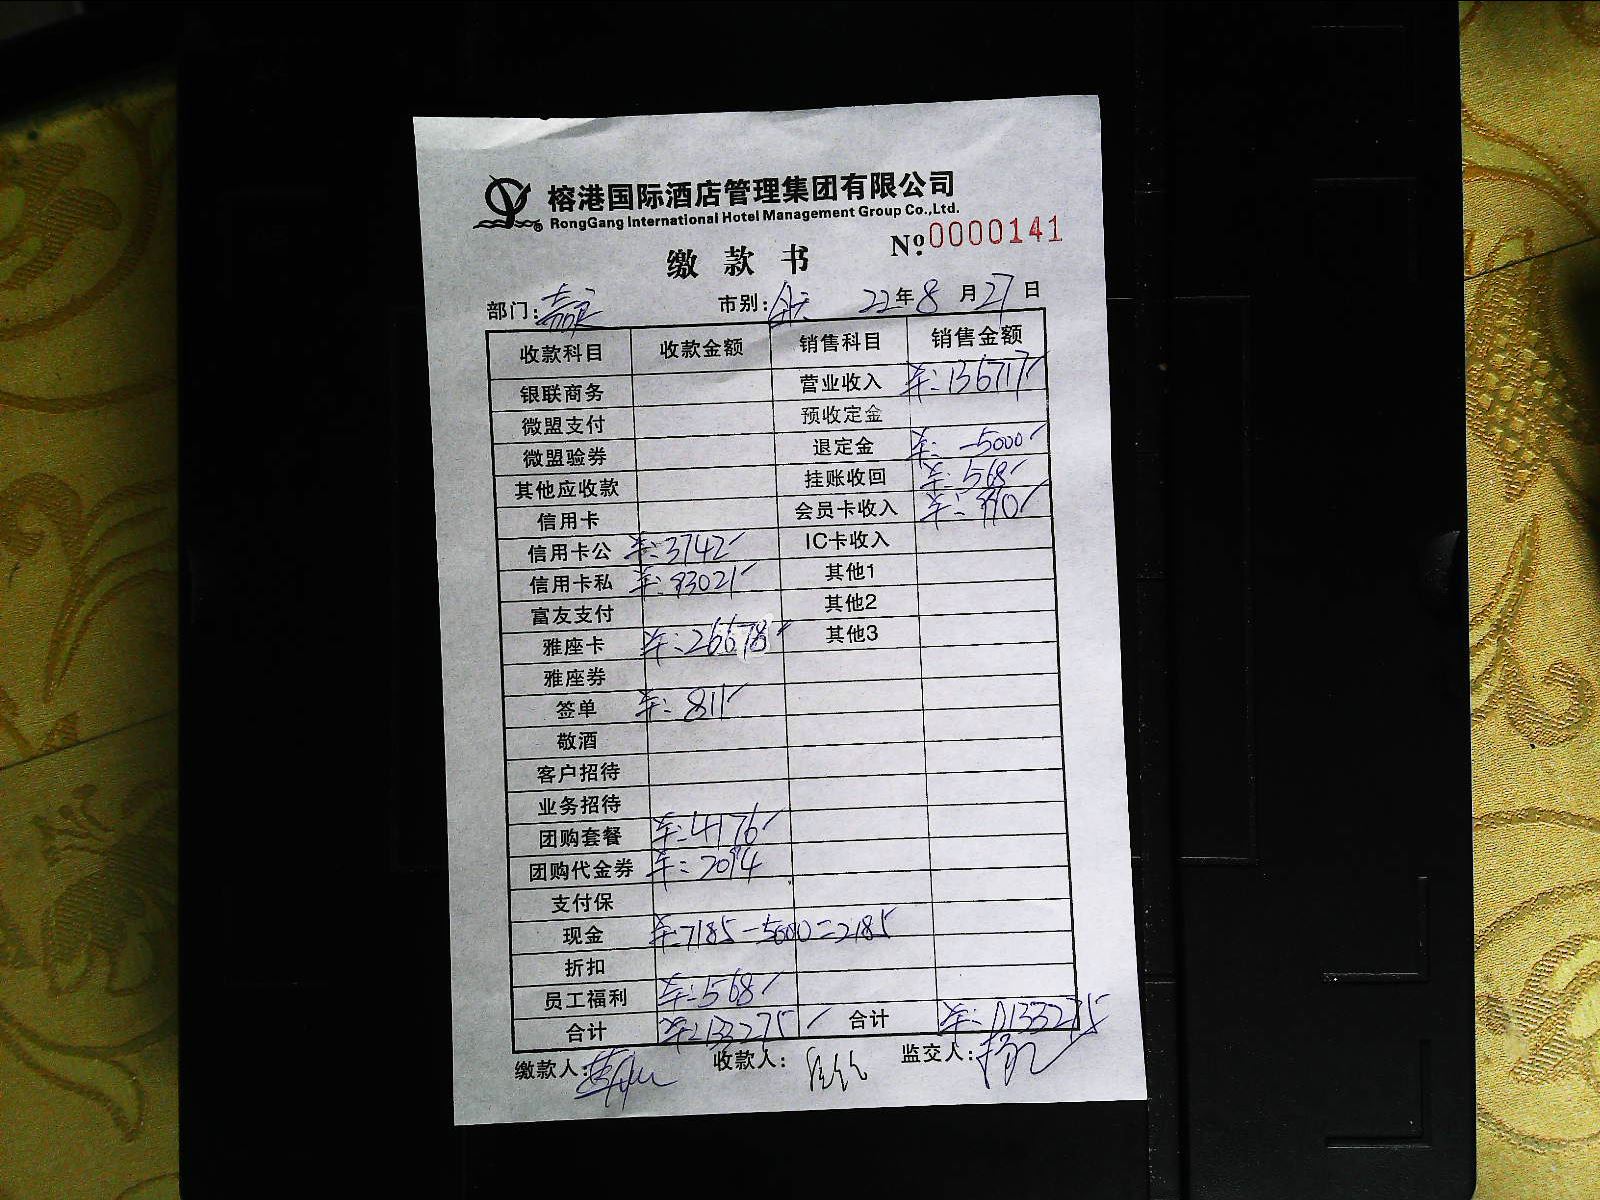 榕港国际酒店管理集团有限公司
RongGang International Hotel Management Group Co.,Ltd.
缴款书 №0000141
部门: 市别:全天 22年8月27日
收款科目 收款金额 销售科目 销售金额
银联商务 营业收入 ¥:136717
微盟支付 预收定金
微盟验券 退定金 ¥:-5000
其他应收款 挂账收回 ¥:568
信用卡 会员卡收入 ¥:990
信用卡公 ¥:3742 IC卡收入
信用卡私 ¥:93021 其他1
富友支付 其他2
雅座卡 ¥:26678 其他3
雅座券
签单 ¥:811
敬酒
客户招待
业务招待
团购套餐 ¥:4176
团购代金券 ¥:2094
支付保
现金 ¥:7185-5000=2185
折扣
员工福利 ¥:568
合计 ¥:133275 合计 ¥:133275
缴款人: 收款人: 监交人: